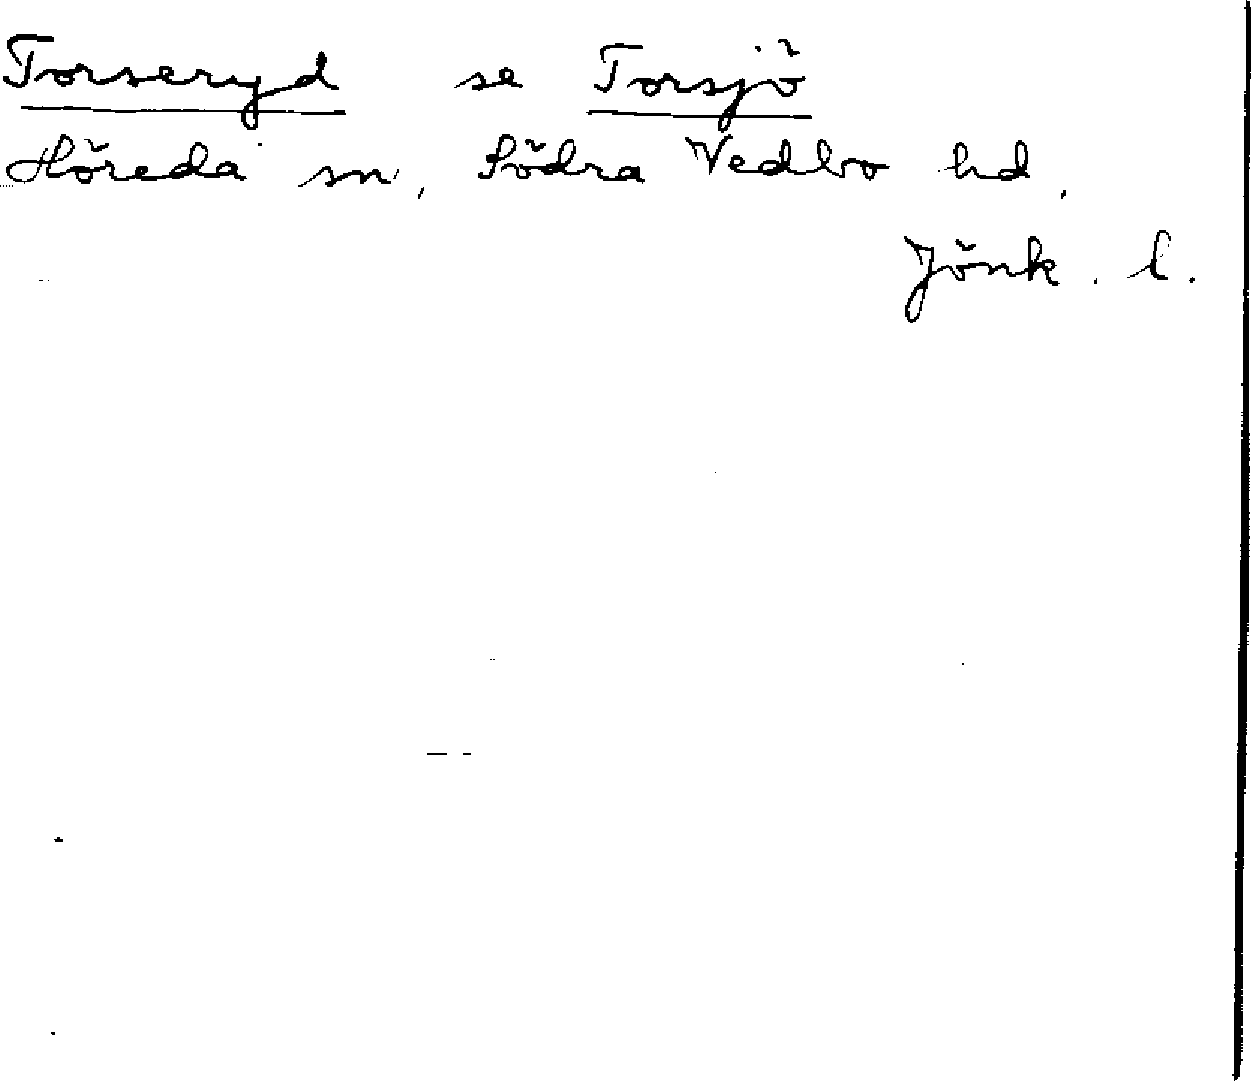 Torseryd se Torsjö
Höreda sn, Södra Vedbo hd,
Jönk. l.